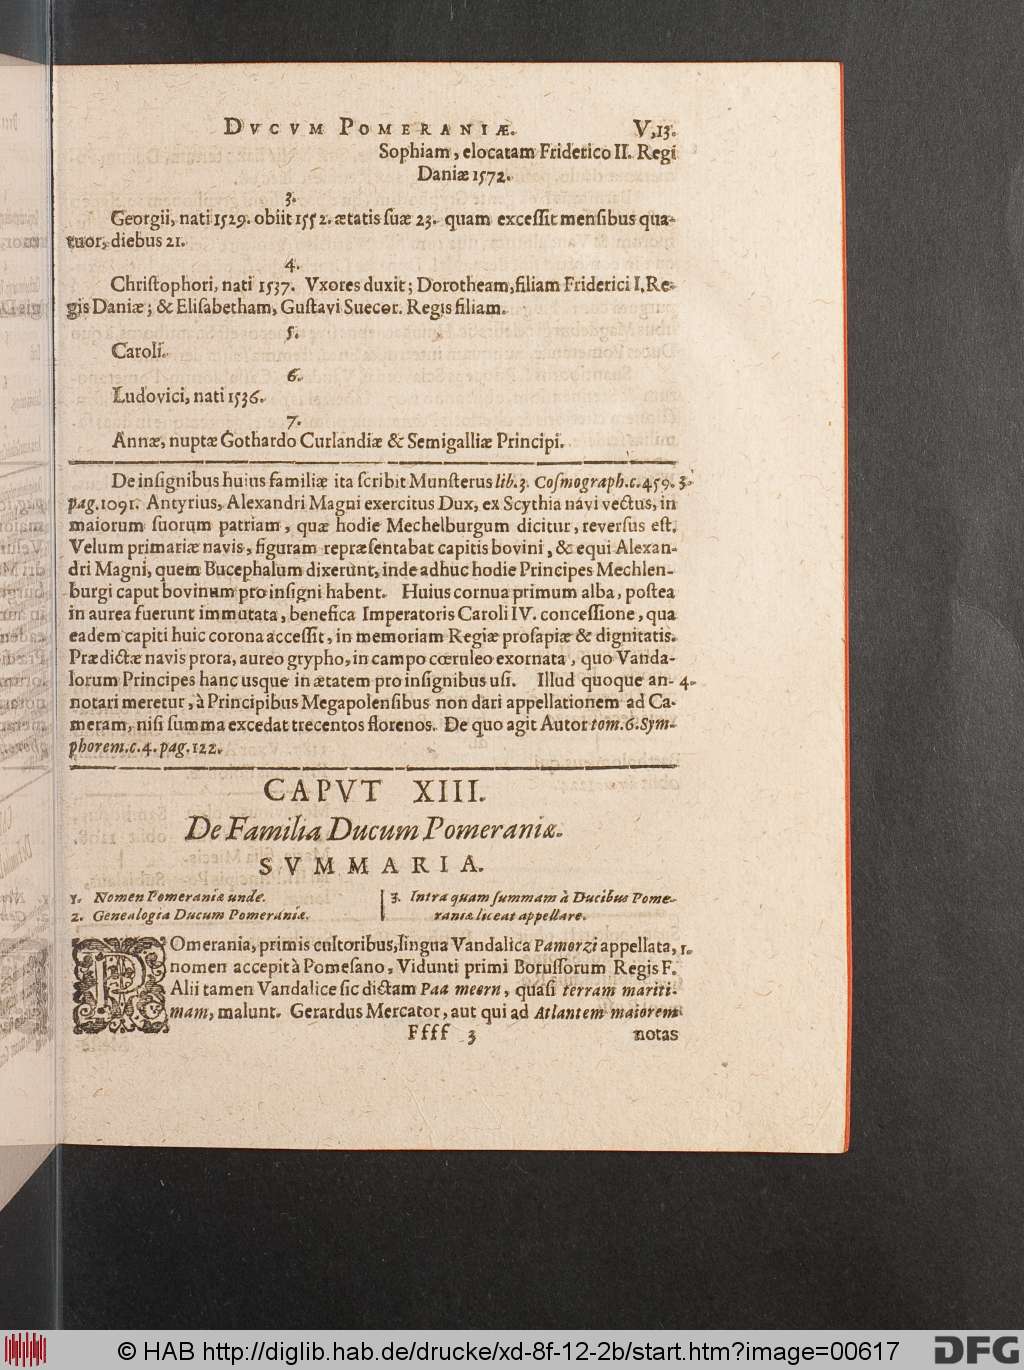 DVCVM POMERANIÆ. V,13.
Sophiam, elocatam Friderico II. Regi
Daniæ 1572.
3.
Georgii, nati 1529. obiit 1552. ætatis ſuæ 23. quam exceſſit menſibus qua-
tuor, diebus 21.
4.
Chriſtophori, nati 1537. Vxores duxit; Dorotheam, filiam Friderici I, Re-
gis Daniæ; & Eliſabetham, Guſtavi Suecor. Regis filiam.
5.
Caroli.
6.
Ludovici, nati 1536.
7.
Annæ, nuptæ Gothardo Curlandiæ & Semigalliæ Principi.
De inſignibus huius familiæ ita ſcribit Munſterus lib. 3. Coſmograph. c. 459. 3.
pag. 1091. Antyrius, Alexandri Magni exercitus Dux, ex Scythia navi vectus, in
maiorum ſuorum patriam, quæ hodie Mechelburgum dicitur, reverſus eſt.
Velum primariæ navis, figuram repræſentabat capitis bovini, & equi Alexan-
dri Magni, quem Bucephalum dixerunt, inde adhuc hodie Principes Mechlen-
burgi caput bovinum pro inſigni habent. Huius cornua primum alba, poſtea
in aurea fuerunt immutata, benefica Imperatoris Caroli IV. conceſſione, qua
eadem capiti huic corona acceſſit, in memoriam Regiæ proſapiæ & dignitatis.
Prædictæ navis prora, aureo grypho, in campo cœruleo exornata, quo Vanda-
lorum Principes hanc usque in ætatem pro inſignibus uſi. Illud quoque an- 4.
notari meretur, à Principibus Megapolenſibus non dari appellationem ad Ca-
meram, niſi ſumma excedat trecentos florenos. De quo agit Autor tom. 6. Sym-
phorem. c. 4. pag. 122.
CAPVT XIII.
De Familia Ducum Pomeraniæ.
SVMMARIA.
1. Nomen Pomeraniæ unde.
2. Genealogia Ducum Pomeraniæ.
3. Intra quam ſummam à Ducibus Pome-
raniæ liceat appellare.
POmerania, primis cultoribus, lingua Vandalica Pamorzi appellata, 1.
nomen accepit à Pomeſano, Vidunti primi Boruſſorum Regis F.
Alii tamen Vandalice ſic dictam Paa meern, quaſi terram mariti-
mam, malunt. Gerardus Mercator, aut qui ad Atlantem maiorem
Ffff 3 notas
© HAB http://diglib.hab.de/drucke/xd-8f-12-2b/start.htm?image=00617
DFG